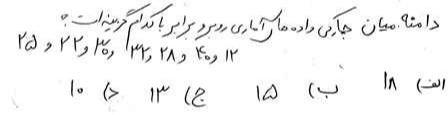 دامنه میان چارکی داده های آماری روبرو برابر با کدام گزینه است؟
۱۲ و ۴۰ و ۲۸ و ۳۲ و ۳۰ و ۲۲ و ۲۵
الف) ۱۸ ب) ۱۵ ج) ۱۳ د) ۱۰